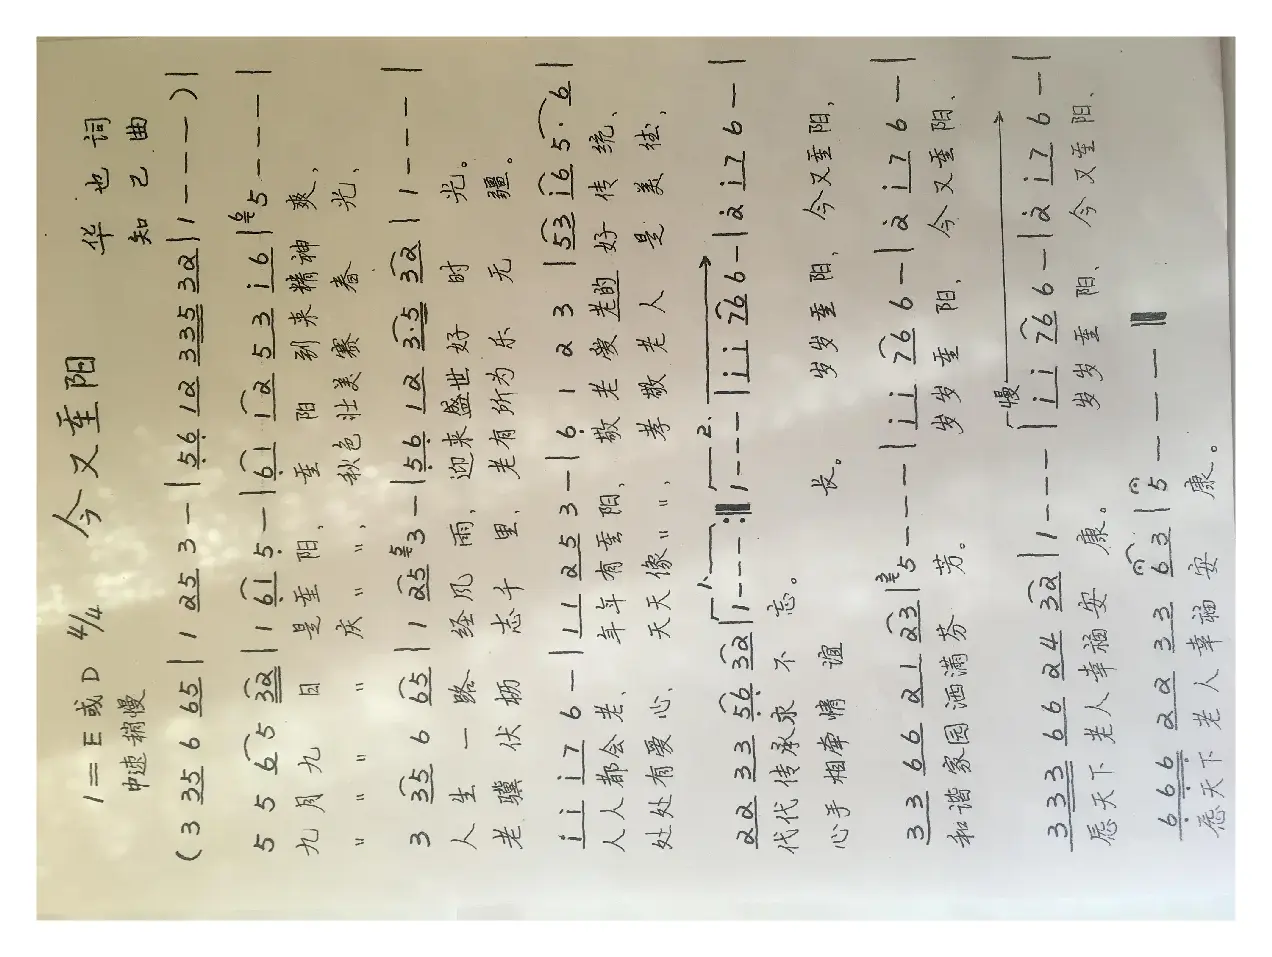 今又重阳
1=E或D 4/4
华也词
中速稍慢
知己曲
(3 35 6 65 | 1 25 3 — | 56 12 335 32 | 1 - - - ) |
5 5 65 32 | 1 61 5 — | 61 12 53 i6 | 5 - - - |
九月九日是重阳,重阳到来精神爽,
〃〃〃〃庆〃〃,秋色壮美赛春光,
3 35 6 65 | 1 25 3 — | 56 12 3·5 32 | 1 - - - |
人生一路经风雨,迎来盛世好时光。
老骥伏枥志千里,老有所为乐无疆。
i i i7 6 — | 11 25 3 — | 6 1 2 3 | 53 i6 5·6 |
人人都会老,年年有重阳,敬老爱老的好传统、
处处有爱心,天天像〃〃,孝敬老人是美德,
22 33 56 32 | 1. 1 - - - :‖ 2. 1 - - - | i i 76 6 — | 2 i7 6 — |
代代传承永不忘。
心手相牵情谊长。岁岁重阳,今又重阳,
33 66 21 23 | 5 - - - | i i 76 6 — | 2 i7 6 — |
和谐家园洒满芬芳。岁岁重阳,今又重阳、
慢
333 66 24 32 | 1 - - - | i i 76 6 — | 2 i7 6 — |
愿天下老人幸福安康。岁岁重阳、今又重阳、
666 22 33 63 | 5 - - - - ‖
愿天下老人幸福安康。